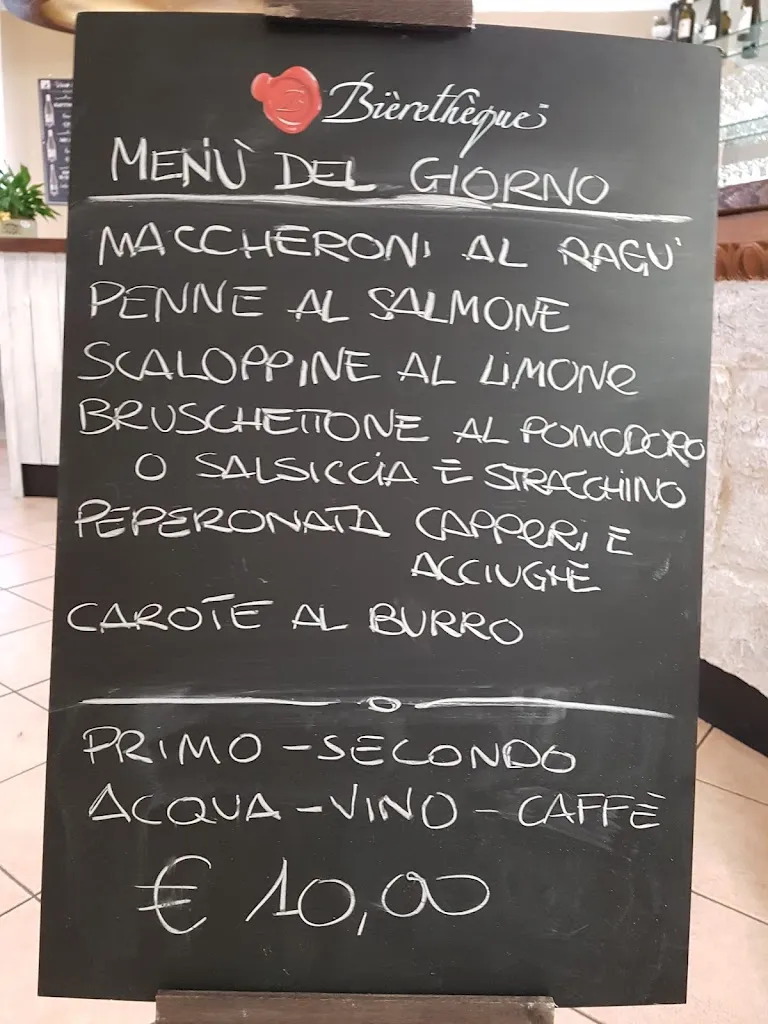 Bièrethèque
MENÙ DEL GIORNO
MACCHERONI AL RAGU'
PENNE AL SALMONE
SCALOPPINE AL LIMONE
BRUSCHETTONE AL POMODORO
O SALSICCIA E STRACCHINO
PEPERONATA CAPPERI E
ACCIUGHE
CAROTE AL BURRO
PRIMO - SECONDO
ACQUA - VINO - CAFFÈ
€ 10,00